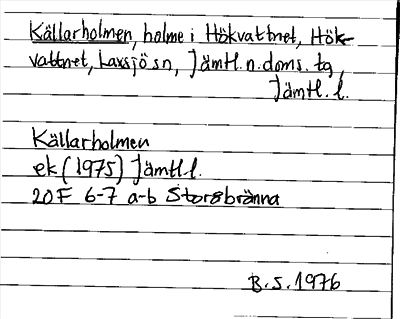 Källarholmen, holme i Hökvattnet, Hök-
vattnet, Laxsjö sn, Jämtl. n. doms. tg,
Jämtl. l.
Källarholmen
ek (1975) Jämtl. l.
20F 6-7 a-b Storbränna
B. S. 1976